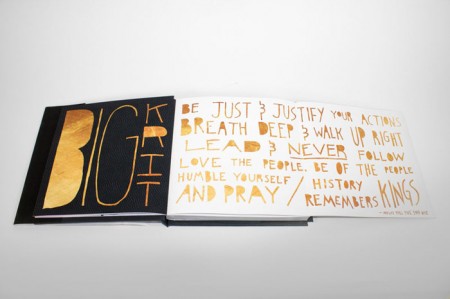 BIG
KRIT
BE JUST & JUSTIFY YOUR ACTIONS
BREATH DEEP & WALK UP RIGHT
LEAD & NEVER FOLLOW
LOVE THE PEOPLE. BE OF THE PEOPLE
HUMBLE YOURSELF
AND PRAY / HISTORY
REMEMBERS KINGS